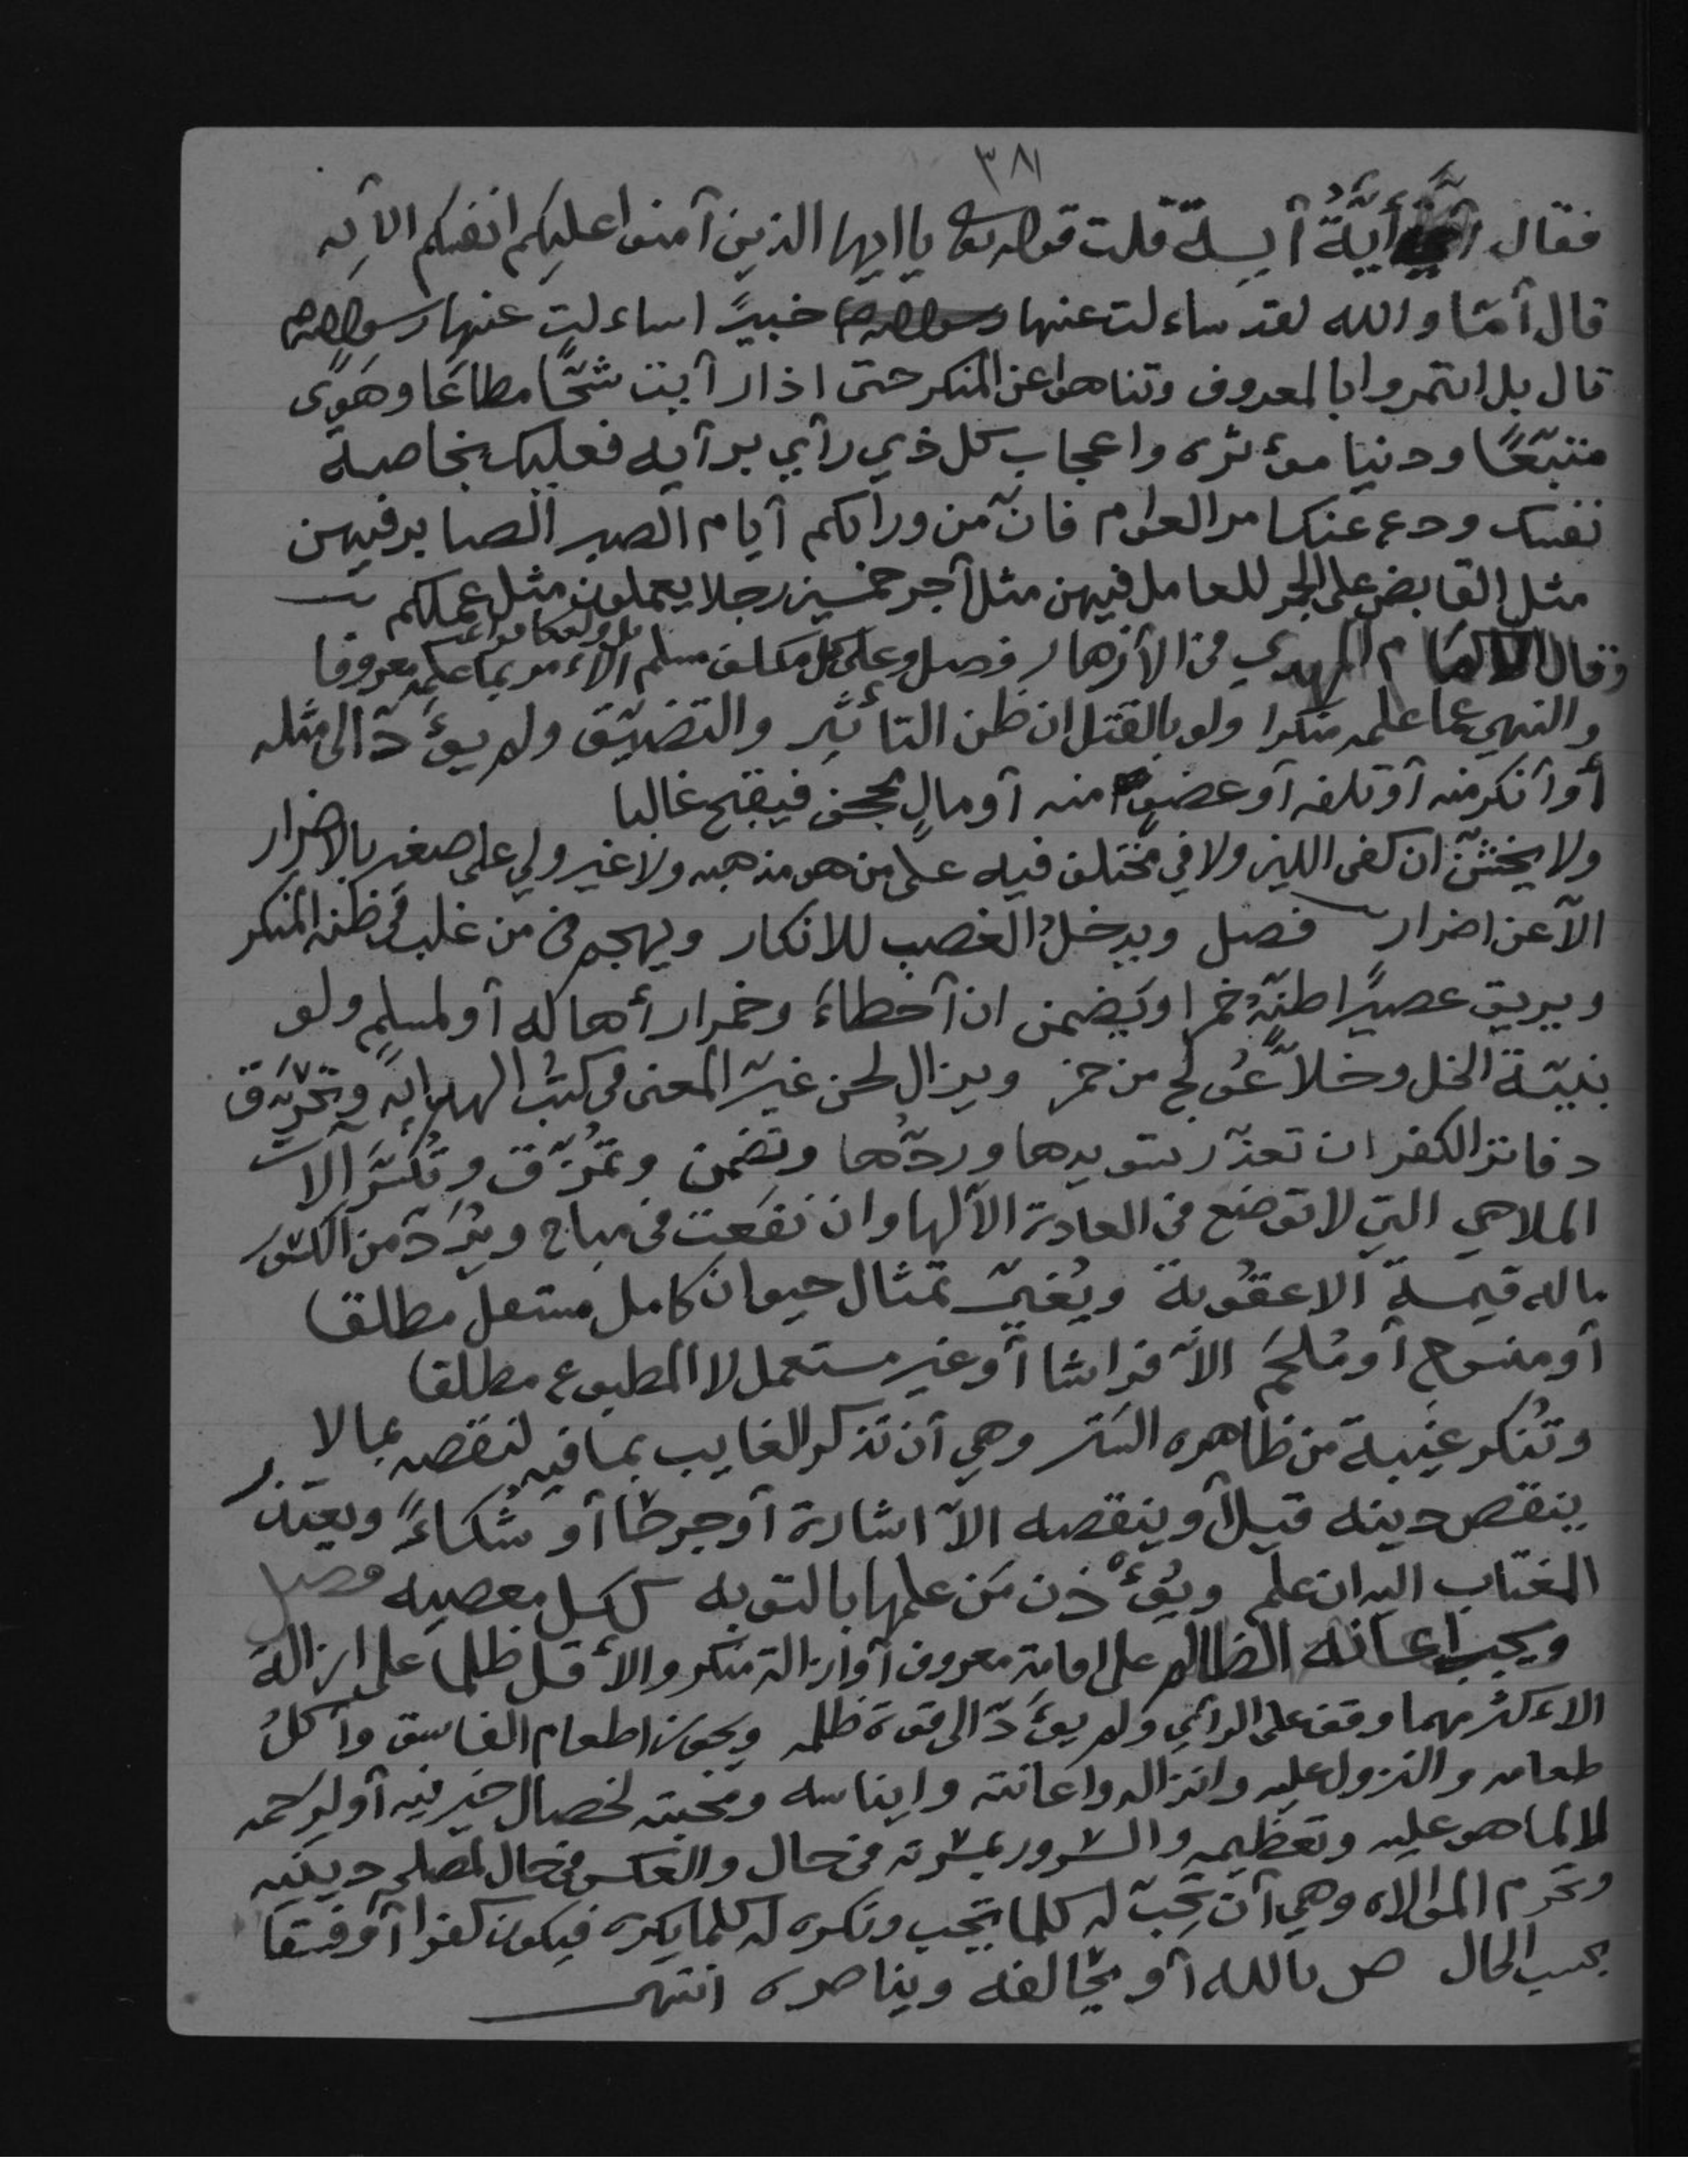 ٣٨١
فقال أيَّةُ آيةٍ قلت قوله تعالى يا ايها الذين آمنوا عليكم انفسكم الآيه
قال أمّا والله لقد ساءلت عنها خبيرًا ساءلت عنها رسول الله
قال بل ائتمروا بالمعروف وتناهوا عن المنكر حتى اذا رأيت شحًّا مطاعًا وهوًى
متبّعًا ودنيا مؤثره واعجاب كل ذي رأي برأيه فعليك بخاصة
نفسك ودع عنك امر العوام فانّ من ورائكم أيام الصبر الصابر فيهن
مثل القابض على الجمر للعامل فيهن مثل أجر خمسين رجلا يعملون مثل عملكم ت
وقال الامام المهدي في الأزهار فصل وعلى كل مكلف مسلم الاءمر بما علمه معروفا
والنهي عما علمه منكرا ولو بالقتل ان ظن التأثير والتضيّق ولم يؤدّ الى مثله
أو أنكر منه أو تلفه أو عضو منه أو مالٍ مجحف فيقبح غالبا
ولا يخشّن ان كفى اللين ولا في مختلف فيه على من هو مذهبه ولا غير ولي على صغير بالاضرار
الاّ عن اضرار فصل ويدخلُ الغصب للانكار ويهجم في من غلب في ظنه المنكر
ويريق عصيرًا ظنّه خمرا ويضمن ان أخطاء وخمرا رأها له أو لمسلم ولو
بنيّة الخل وخلاًّ عُولج من خمر ويزال لحن غيّر المعنى في كتب الهدايه وتحرّق
دفاتر الكفر ان تعذّر تسويدها وردُّها وتضمن وتُمزّق وتُكسَّر آلات
الملاهي التي لا توضع في العادة الاّ لها وان نفعت في مباح ويُردّ من الكسور
ما له قيمة الا عقوبة ويُغيّر تمثال حيوان كامل مستعمل مطلقا
أو منسوج أو مُلحَم الاّ فراشا أو غير مستعمل لا المطبوع مطلقا
وتُنكر غيبة من ظاهره الستر وهي أن تذكر الغايب بما فيه لنقصه بما لا
ينقص دينه قيل أو ينقصه الاّ اشارة أو جرحًا أو شكاءً ويعتذر
المغتاب اليه ان علم ويُؤذن مَن علمها بالتوبه ككل معصيه فصل
ويجب اعانة الظالم على اقامة معروف أو ازالة منكر والأقل ظلما على ازالة
الاءكثر مهما وقف على الرأي ولم يؤدّ الى قوة ظلمه ويجوز اطعام الفاسق وأكلُ
طعامه والنزول عليه وانزاله واعانته وايناسه ومحبته لخصال خير فيه أو لرحمه
لا لما هو عليه وتعظيمه والسرور بمسرته في حال والعكس في حال لمصلحة دينيه
وتحرم الموالاه وهي أن تحبّ له كلما تحب وتكره له كلما يكره فيكون كفرا أو فسقا
بحسب الحال أو يخالفه ويناصره انتهى